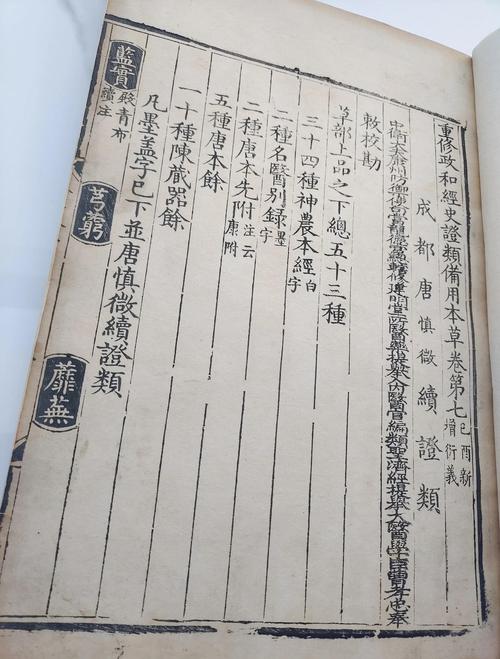 重修政和經史證類備用本草卷第七 己酉新增衍義
成都唐慎微續證類
中衛大夫康州防禦使句當龍德宮總轄修建明堂所醫藥提舉入內醫官編類聖濟經提舉太醫學臣曹孝忠奉
敕校勘
草部上品之下總五十三種
三十四種神農本經 白字
二種名醫別錄 墨字
二種唐本先附 注云唐附
五種唐本餘
一十種陳藏器餘
凡墨盖字巳下並唐慎微續證類
藍實 青布續注 芎窮 蘼蕪